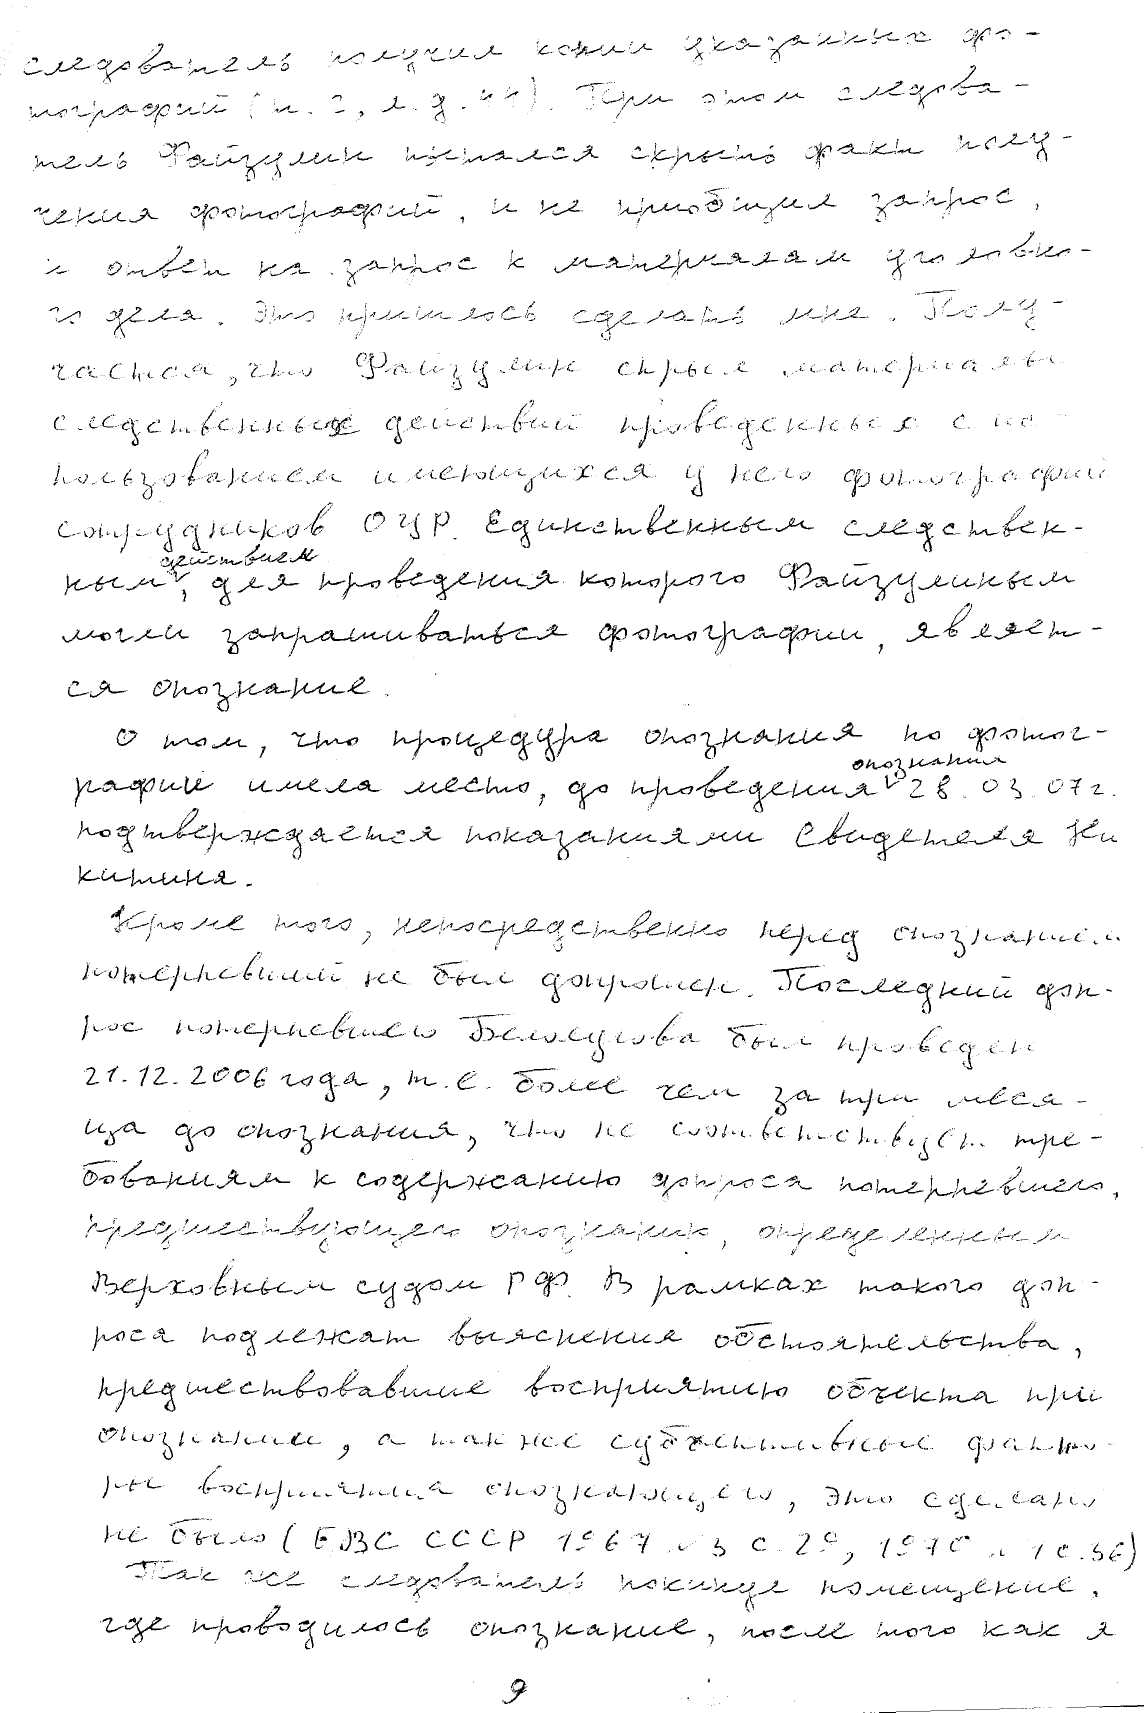 следователь получил копии указанных фо-
тографий (т. 2, л.д. 44). При этом следова-
тель Файзулин пытался скрыть факт полу-
чения фотографий, и не приобщил запрос,
и ответ на запрос к материалам уголовно-
го дела. Это пришлось сделать мне. Полу-
чается, что Файзулин скрыл материалы
следственных действий проведенных с ис-
пользованием имеющихся у него фотографий
сотрудников ОУР. Единственным следствен-
действием
ным, для проведения которого Файзулиным
могли запрашиваться фотографии, являет-
ся опознание.
О том, что процедура опознания по фотог-
опознания
рафий имела место, до проведения 28.03.07г.
подтверждается показаниями Свидетеля Ни
китина.
Кроме того, непосредственно перед опознанием
потерпевший не был допрошен. Последний доп-
рос потерпевшего был проведен
21.12.2006 года, т.е. более чем за три меся-
ца до опознания, что не соответствует тре-
бованиям к содержанию допроса потерпевшего,
предшествующего опознанию, определенным
Верховным судом РФ. В рамках такого доп-
роса подлежат выяснения обстоятельства,
предшествовавшие восприятию объекта при
опознании, а так же субъективные факто-
ры восприятия опознающего, это сделано
не было (БВС СССР 1967 №3 с. 29, 1970 №1 с.36)
Так же следователь покинув помещение,
где проводилось опознание, после того как я
9